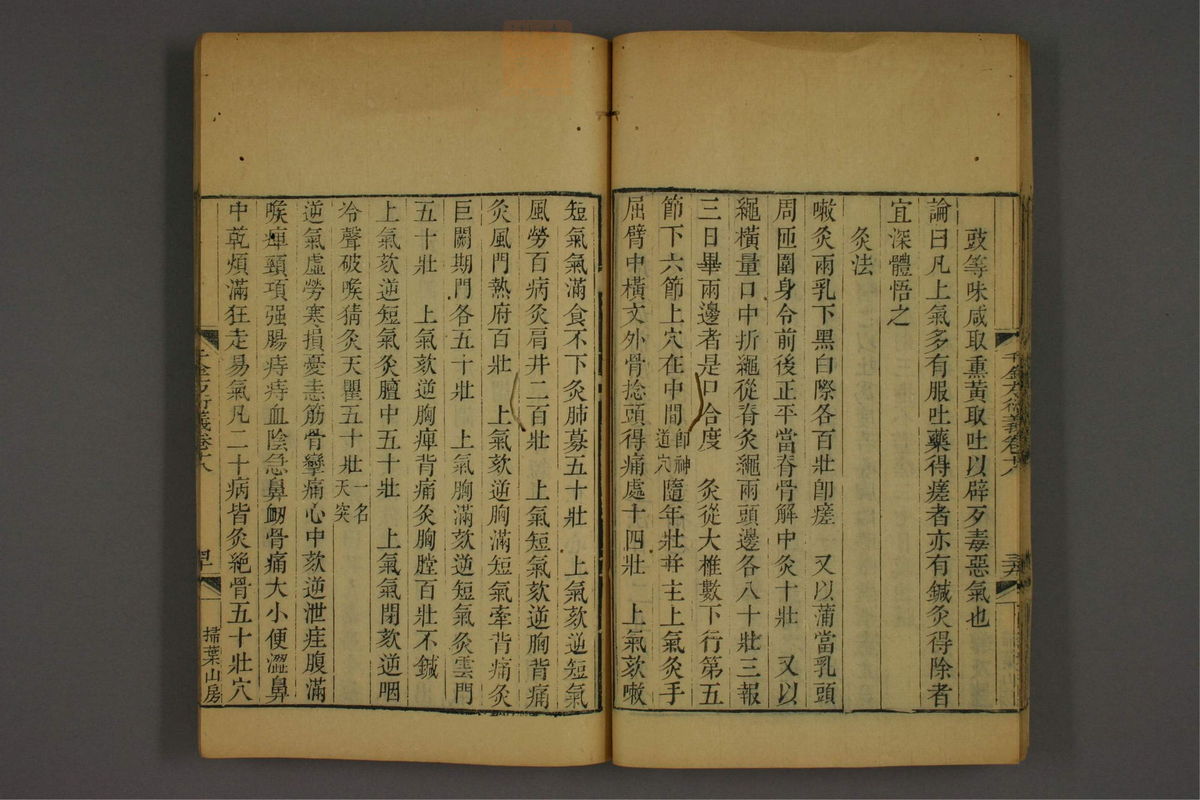 豉等味咸取熏黃取吐以辟歹毒惡氣也
論曰凡上氣多有服吐藥得瘥者亦有鍼灸得除者
宜深體悟之
灸法
嗽灸兩乳下黑白際各百壯卽瘥　又以蒲當乳頭
周匝圍身令前後正平當脊骨解中灸十壯　又以
繩橫量口中折繩從脊灸繩兩頭邊各八十壯三報
三日畢兩邊者是口合度　灸從大椎數下行第五
節下六節上穴在中間卽神道穴隨年壯并主上氣灸手
屈臂中橫文外骨捻頭得痛處十四壯　上氣欬嗽
短氣氣滿食不下灸肺募五十壯　上氣欬逆短氣
風勞百病灸肩井二百壯　上氣短氣欬逆胸背痛
灸風門熱府百壯　上氣欬逆胸滿短氣牽背痛灸
巨闕期門各五十壯　上氣胸滿欬逆短氣灸雲門
五十壯　上氣欬逆胸痺背痛灸胸膛百壯不鍼
上氣欬逆短氣灸膻中五十壯　上氣氣閉欬逆咽
冷聲破喉猜灸天瞿五十壯一名天突
逆氣虛勞寒損憂恚筋骨攣痛心中欬逆泄疰腹滿
喉痺頸項强腸痔痔血陰急鼻衂骨痛大小便澀鼻
中乾煩滿狂走易氣凡二十病皆灸絶骨五十壯穴
千金方衍義卷十八
掃葉山房